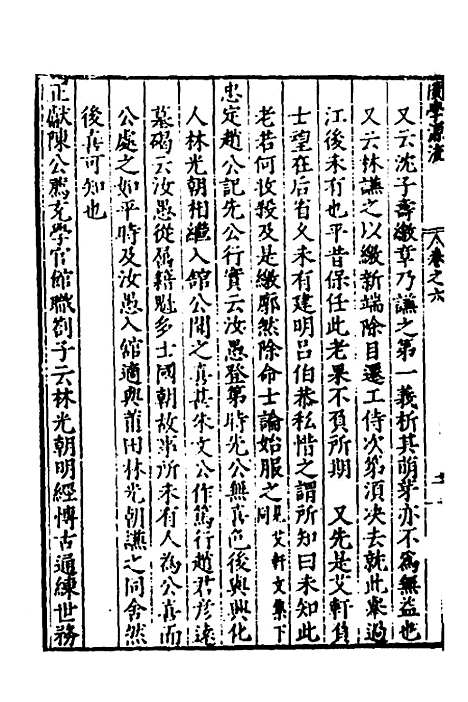 閩學源流
卷之六
又云沈子壽繳章乃謙之第一義析其萌芽亦不爲無益也
又云林謙之以繳新端除目遷工侍次第須决去就此舉過
江後未有也平昔保任此老果不負所期 又先是艾軒負
士望在后省久未有建明呂伯恭私惜之謂所知曰未知此
老若何收殺及是繳廓然除命士論始服之同見艾軒文集下
忠定趙公記先公行實云汝愚登第時先公無喜色後與興化
人林光朝相繼入舘公聞之喜甚朱文公作篤行趙君彥遠
墓碣云汝愚從爲籍魁多士國朝故事所未有人為公喜而
公處之如平時及汝愚入舘適與莆田林光朝謙之同舍然
後喜可知也
正獻陳公薦充學官館職劄子云林光朝明經博古通練世務